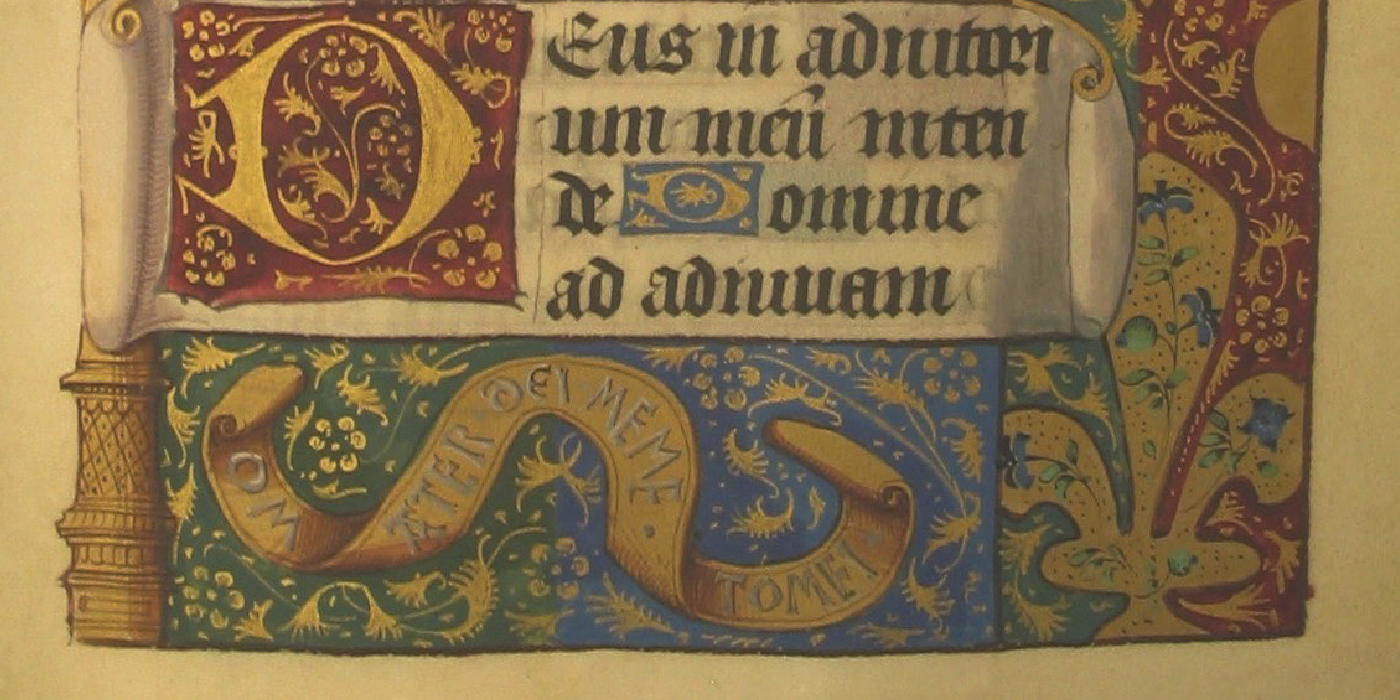 Deus in adiutori
um meū inten
de Domine
ad adiuuam
OM ATER·DEI·MEME·TOMEI·